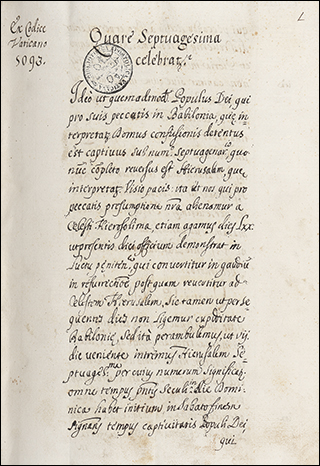 Ex Codice
Vaticano
5093.
Quare Septuagesima
celebrat.r
Ideo ut quemadmod. Populus Dei, qui
pro suis peccatis in Babilonia, que in-
terpretat. Domus confusionis detentus
est captivus sub num. Septuagenar. quo
num. completo reversus est Hierusalem, que
interpretat. Visio pacis: ita ut nos qui pro
peccatis presumptione nrã alienamur a
Celesti Hierosolima, etiam agamus dies Lxx.
ut presentis diei officium demonstrat in
Luctu peniten. qui convertitur in gaudiũ
in resurrectiõe postquam revertitur ad
Celestem Hierusalem, Sic tamen ut per se-
quentes dies non ligemur cupiditate
Babilonie, sed ita perambulemus, ut vij.
die veniente intremus Hierusalem Se-
ptuages.ma per cuius numerum Significat.
omne tempus pntis Seculi. A die Domi-
nica habet initium, in Sabato finem
signans tempus captivitatis Populi Dei,
qui